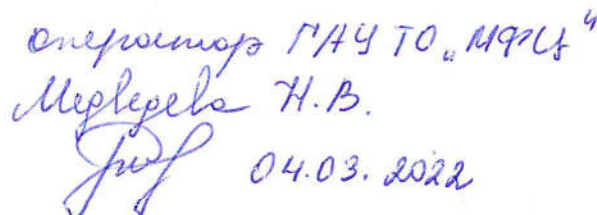 оператор ГАУ ТО „МФЦ"
Медведева Н.В.
04.03.2022